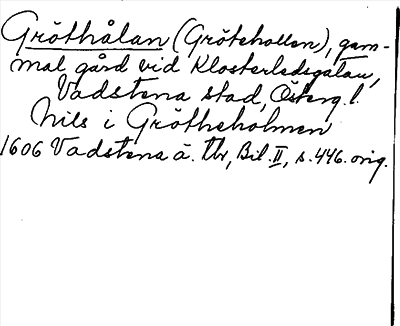 Gröthålan (Grötehollen), gam-
mal gård vid Klosterledsgatan,
Vadstena stad, Österg. l.
Nils i Grötheholmen
1606 Vadstena ä. Tbr, Bil. II, s. 446. orig.